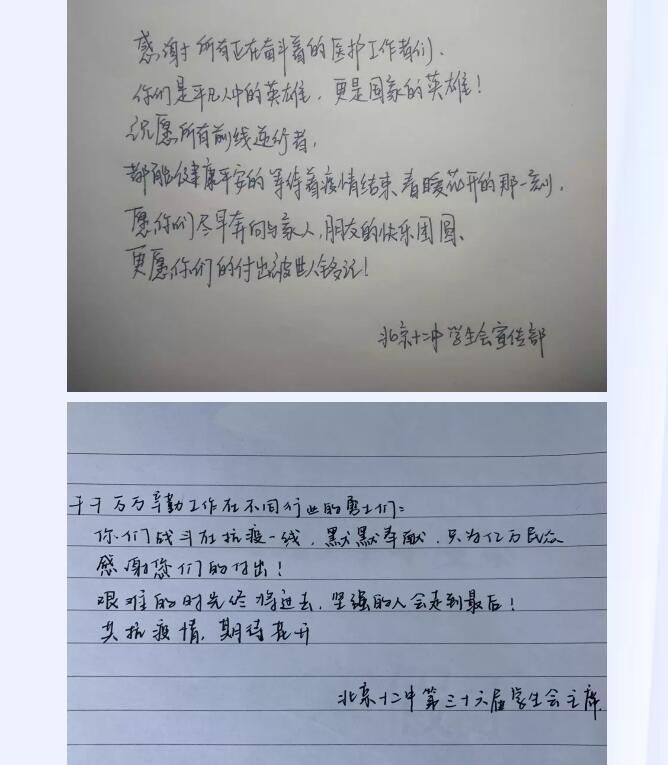 感谢于所有正在奋斗着的医护工作者们、
你们是平凡人中的英雄，更是国家的英雄！
祝愿所有前线逆行者，
都能健康平安的等待着疫情结束、春暖花开的那一刻，
愿你们尽早奔向与家人，朋友的快乐团圆、
更愿你们的付出被世人铭记！
北京十二中学生会宣传部
千千万万辛勤工作在不同行业的勇士们：
你们战斗在抗疫一线，默默奉献，只为亿万民众
感谢您们的付出！
艰难的时光终将过去，坚强的人会走到最后！
共抗疫情，期待花开
北京十二中第三十六届学生会主席